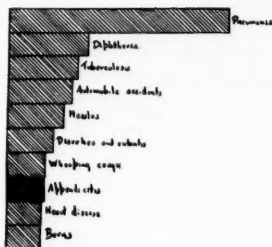 Pneumonia
Diphtheria
Tuberculosis
Automobile accidents
Measles
Diarrhea and enteritis
Whooping cough
Appendicitis
Heart disease
Burns